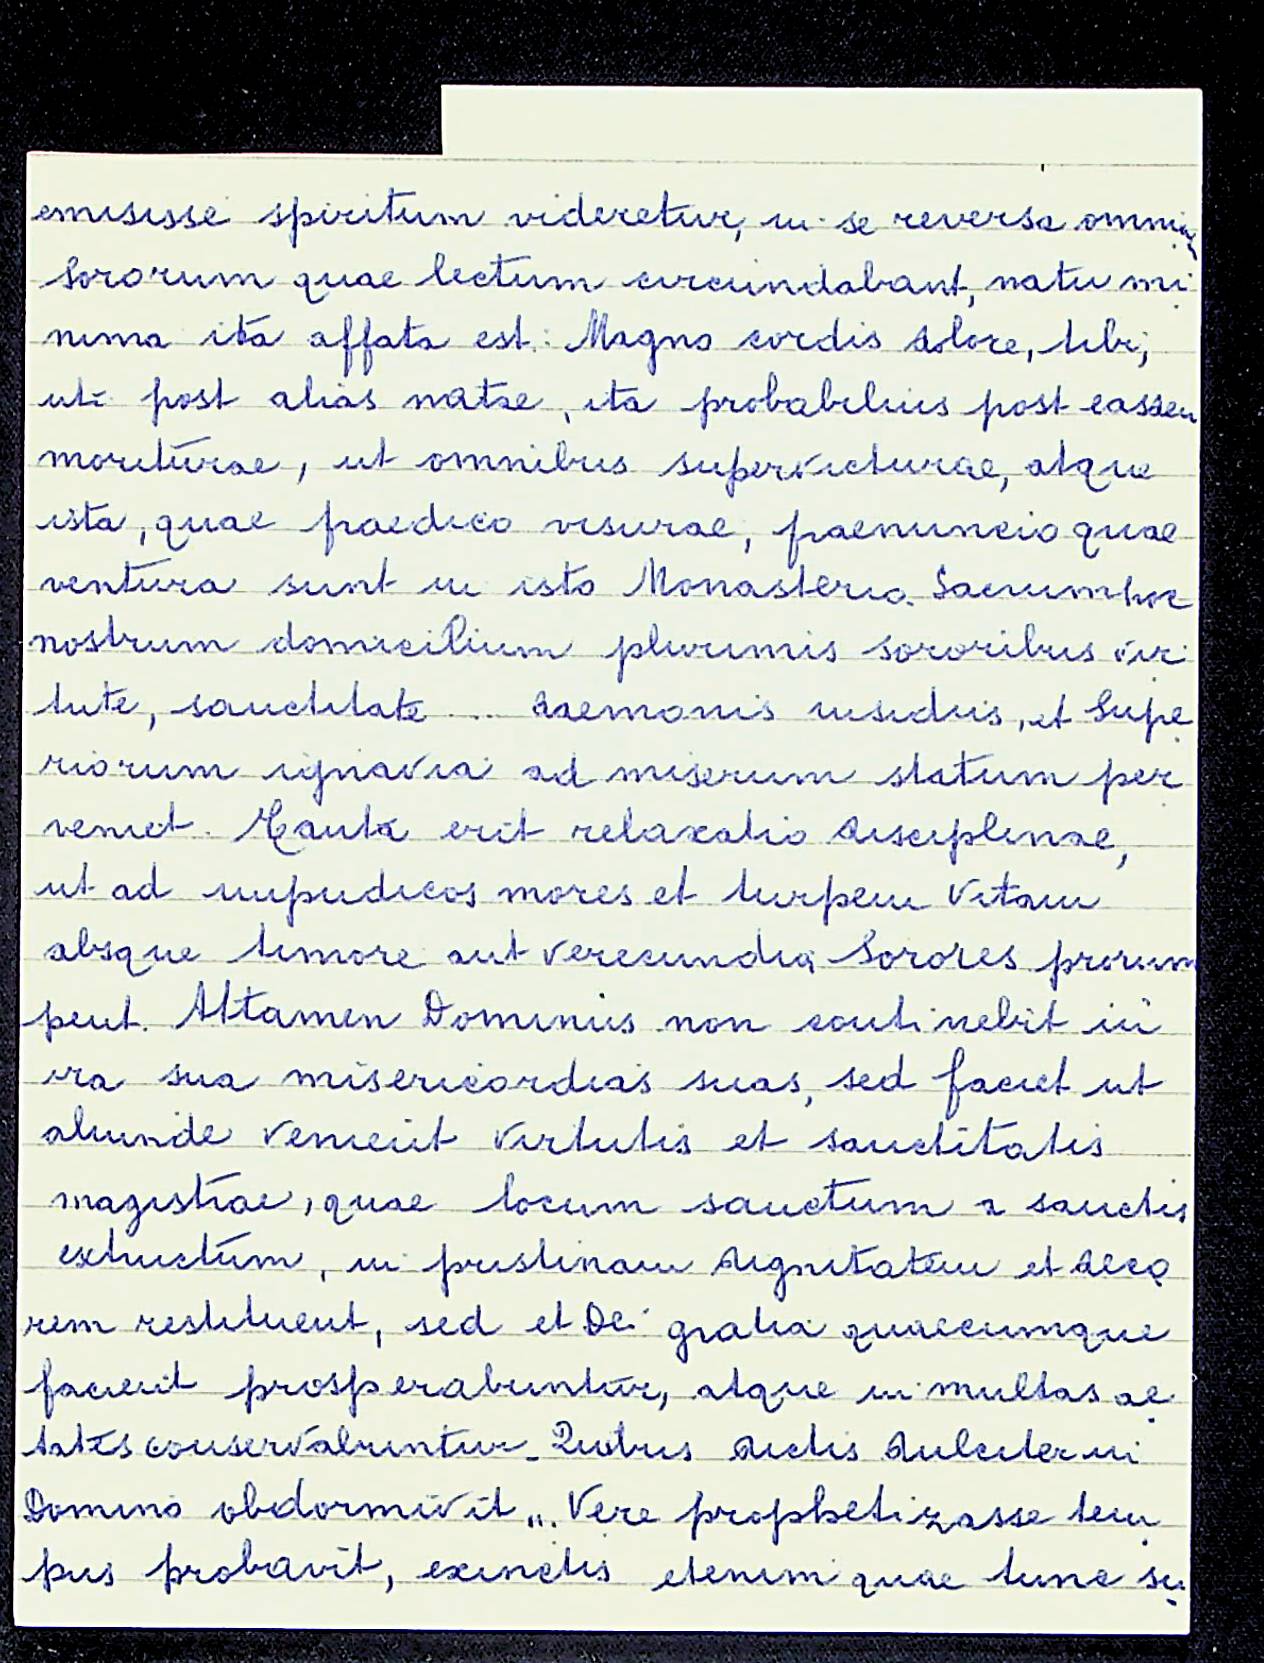 emisisse spiritum videretur, in se reversa omnia
Sororum quae lectum circundabant, natu mi
nima ita affata est: Magno cordis dolore, tibi,
uti post alias natae, ita probabilius post easdem
moriturae, ut omnibus supervicturae, atque
ista, quae praedico visurae, praenuncio quae
ventura sunt in isto Monasterio. Sacrum hoc
nostrum domicilium plurimis sororibus vir
tute, sanctitate ... daemonis insidiis, et Supe
riorum ignavia ad miserum statum per
veniet. Tanta erit relaxatio disciplinae,
ut ad impudicos mores et turpem vitam
absque timore aut verecundia Sorores prorum
pent. Attamen Dominus non continebit in
ira sua misericordias suas, sed faciet ut
aliunde venient virtutis et sanctitatis
magistrae, quae locum sanctum a sanctis
extructum, in pristinam dignitatem et deco
rem restituent, sed et Dei gratia quaecumque
facient prosperabuntur, atque in multas ae
tates conservabuntur. Quibus dictis dulciter in
Domino obdormivit„. Vere prophetizasse tem
pus probavit, exinctis etenim quae tunc su